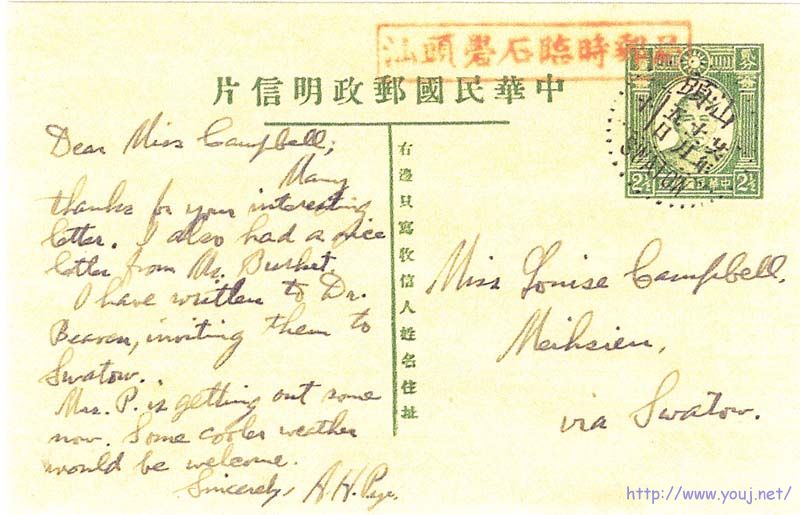 汕頭礐石臨時郵局
中華民國郵政明信片
汕頭
SWATOW
2½ 2½
右邊只寫收信人姓名住址
Dear Miss Campbell;
Many
thanks for your interesting
letter. I also had a nice
letter from Mr. Burket.
I have written to Dr.
Beaven, inviting them to
Swatow.
Mrs. P. is getting out some
now. Some cooler weather
would be welcome.
Sincerely, A.H. Page.
Miss Louise Campbell.
Meihsien,
via Swatow.
http://www.youj.net/